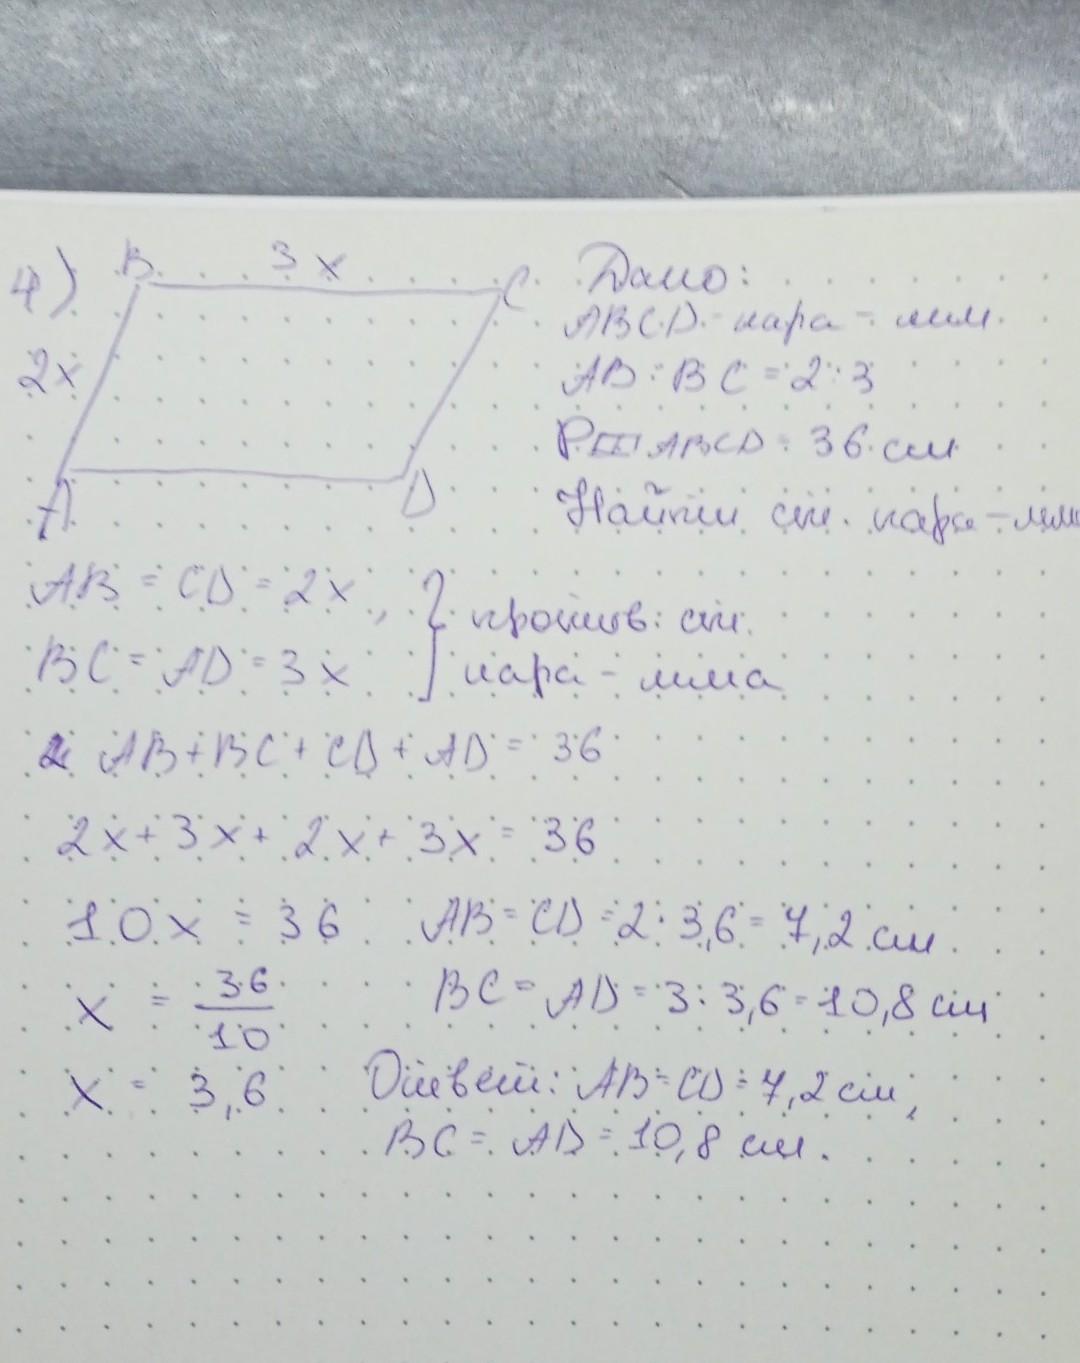 4)
B
3x
C
2x
A
D
Дано:
ABCD - пара-мм.
AB : BC = 2:3
P ABCD = 36 см
Найти ст. пара-мма
AB = CD = 2x,
BC = AD = 3x
против. ст.
пара-мма
AB + BC + CD + AD = 36
2x + 3x + 2x + 3x = 36
10x = 36
x = 36/10
x = 3,6
AB = CD = 2 · 3,6 = 7,2 см
BC = AD = 3 · 3,6 = 10,8 см
Ответ: AB = CD = 7,2 см,
BC = AD = 10,8 см.